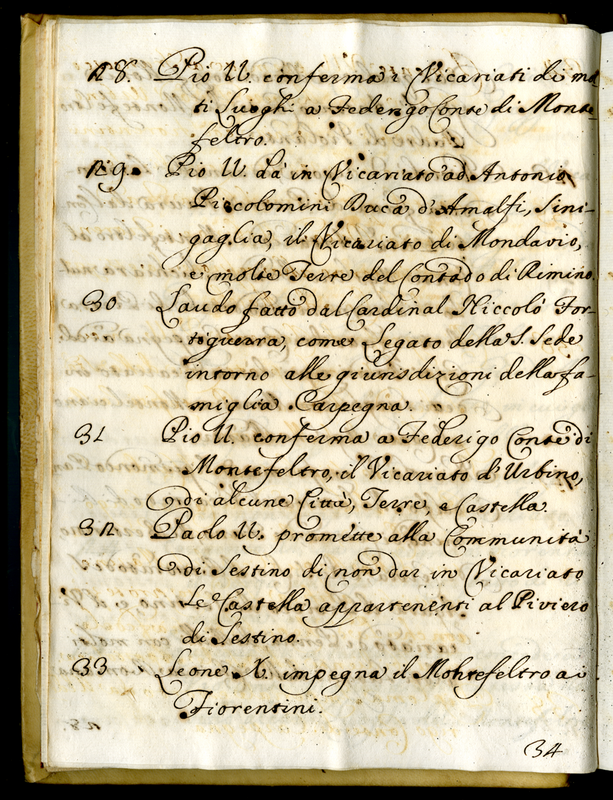 28. Pio II. conferma i Vicariati di mol
ti Luoghi a Federigo Conte di Monte
feltro.
29. Pio II. da in Vicariato ad Antonio
Piccolomini Duca d'Amalfi, Sini-
gaglia, il Vicariato di Mondavio,
e molte Terre del Contado di Rimino.
30 Laudo fatto dal Cardinal Niccolò For-
tiguerra come Legato della S. Sede
intorno alle giurisdizioni della fa-
miglia Carpegna.
31 Pio II. conferma a Federigo Conte di
Montefeltro, il Vicariato d'Urbino,
e di alcune Città, Terre, e Castella.
32 Paolo II. promette alla Communità
di Sestino di non dar in Vicariato
Le Castella appartenenti al Piviero
di Sestino.
33 Leone X. impegna il Montefeltro ai
Fiorentini.
34